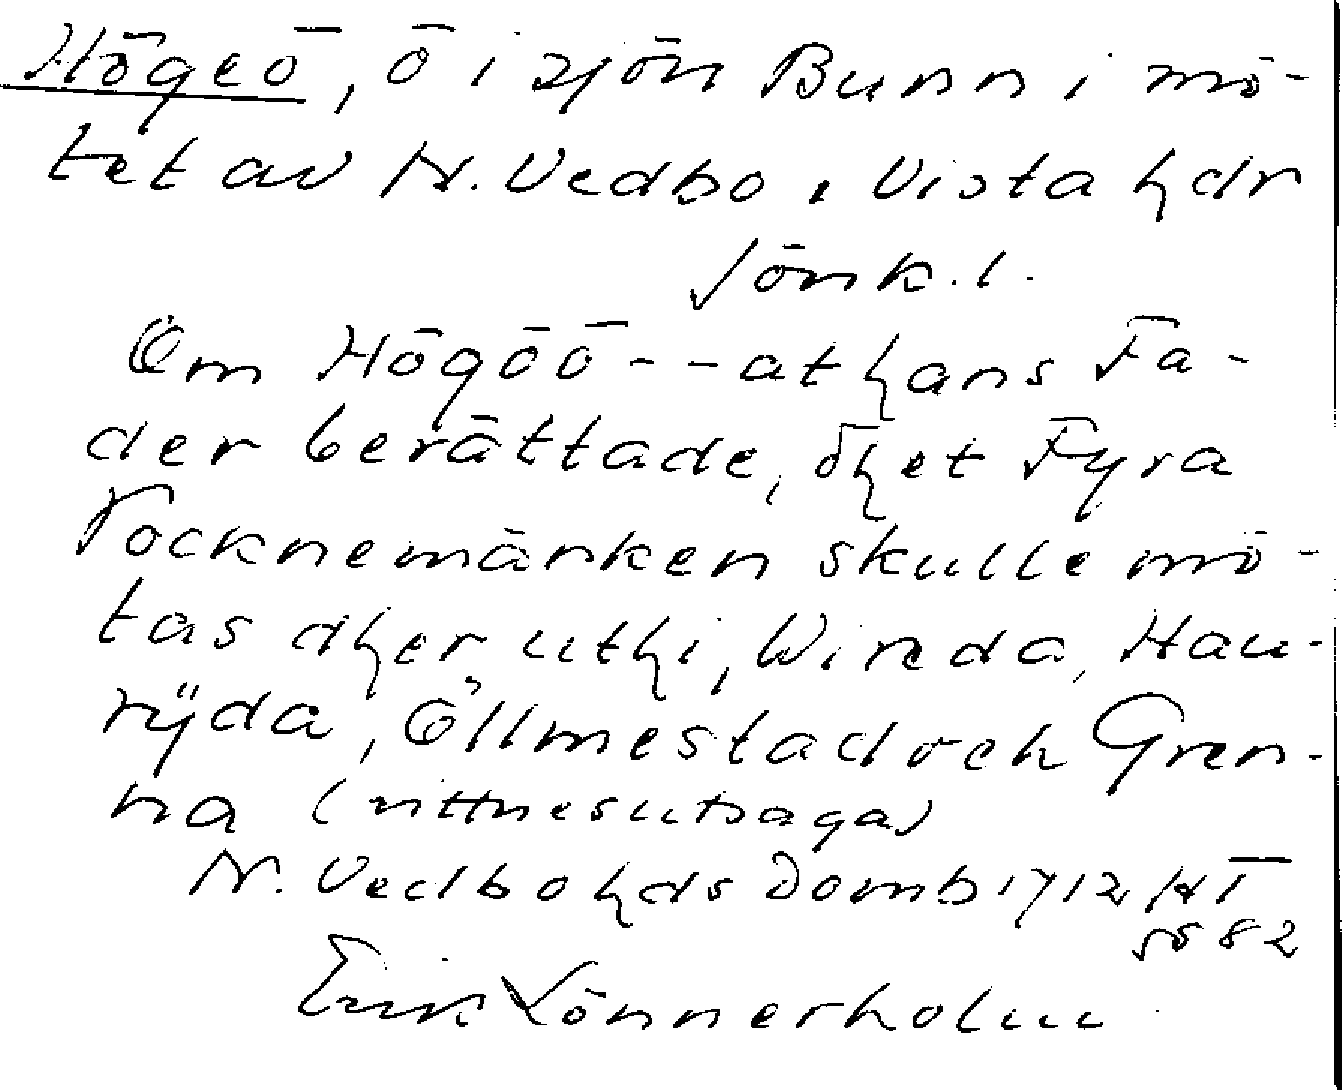 Högeö, ö i sjön Bunn i mö-
tet av N. Vedbo, Vista hdr
Jönk. l.
Om Högöö - - at hans Fa-
der berättade, dhet Fyra
Socknemärken skulle mö-
tas dher uthi, Wireda, Hau-
rÿda, Öllmestad och Gren-
na (vittnesutsaga)
N. Vedbo hds domb 1712 HT
§ 82
Erik Lönnerholm